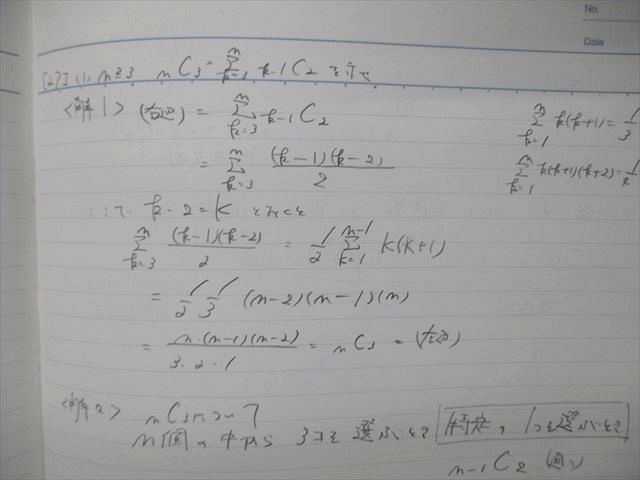 No.
Date
[27] (1) n≧3 nC3 = Σ[k=3→n] k-1C2 を示せ
<解1> (右辺) = Σ[k=3→n] k-1C2
Σ[k=1→n] k(k+1) = 1/3
= Σ[k=3→n] (k-1)(k-2)/2
Σ[k=1→n] k(k+1)(k+2) =
ここで k-2=K とおくと
Σ[k=3→n] (k-1)(k-2)/2 = 1/2 Σ[K=1→n-1] K(K+1)
= 1/2 1/3 (n-2)(n-1)(n)
= n·(n-1)(n-2)/3·2·1 = nC3 = (左辺)
<解2> nC3について
n個の中から 3コを選ぶとき 特定の1つを選ぶとき
n-1C2 (通り)